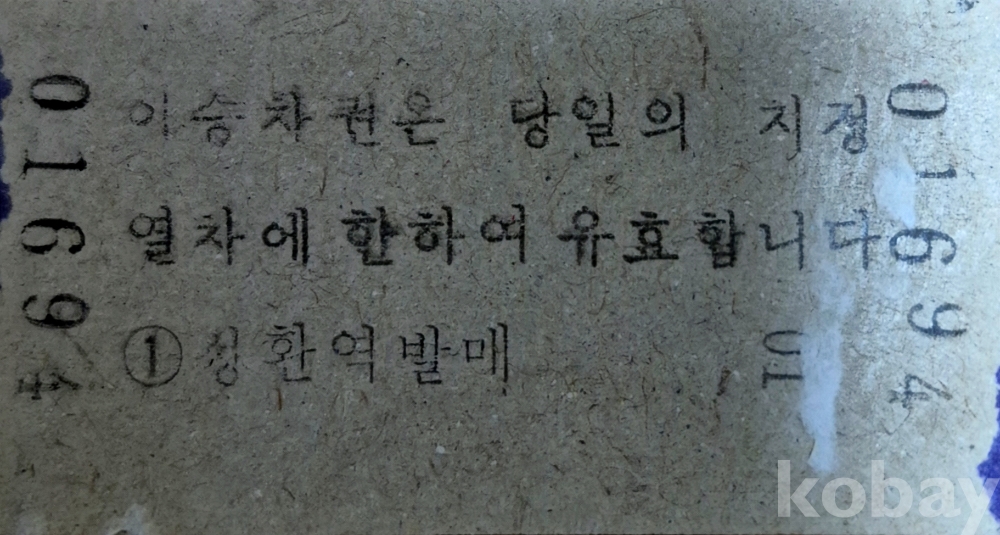 01694
이승차권은 당일의 지정
열차에 한하여 유효합니다
①성환역발매 01
01694
kobay